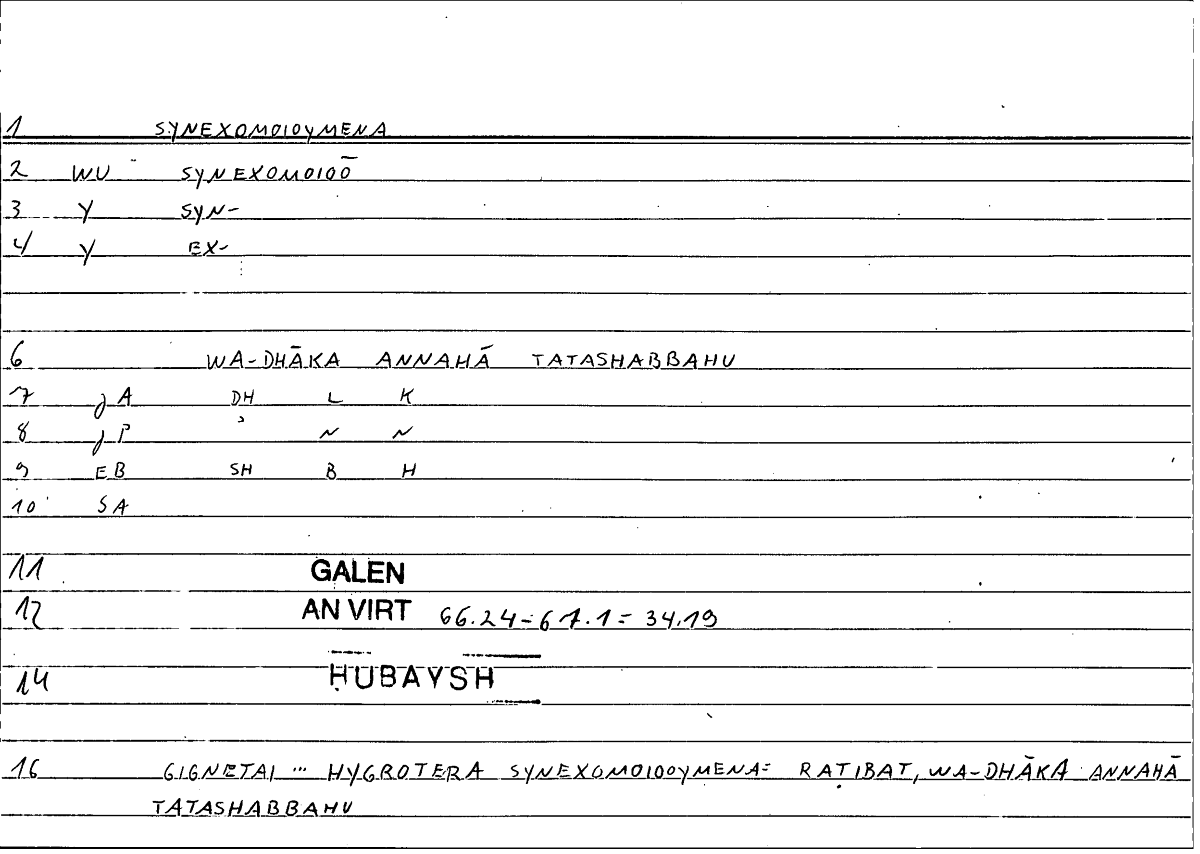 1 SYNEXOMOIOYMENA
2 WU SYNEXOMOIOŌ
3 Y SYN-
4 Y EX-
6 WA-DHĀKA ANNAHĀ TATASHABBAHU
7 JA DH L K
8 JP ʾ N N
9 EB SH B H
10 SA
11 GALEN
12 AN VIRT 66.24-67.1= 34.19
14 ḤUBAYSH
16 GIGNETAI ... HYGROTERA SYNEXOMOIOOYMENA= RAṬIBAT, WA-DHĀKA ANNAHĀ
TATASHABBAHU